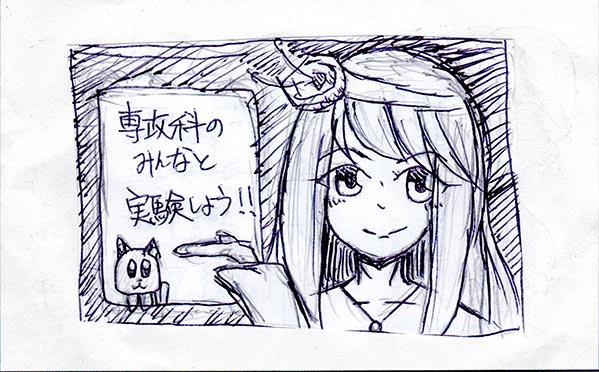 専攻科の
みんなと
実験しよう!!